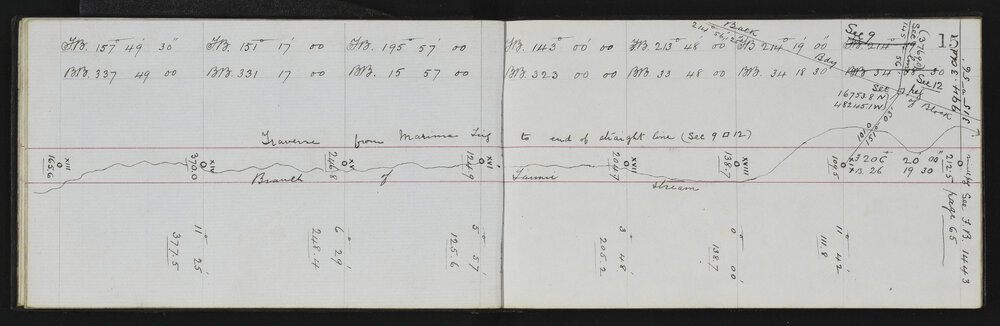 F.B. 157° 49' 30" F.B. 151° 17' 00 F.B. 195° 57' 00 F.B. 143° 00' 00 F.B. 213° 48 00 F.B. 214° 19' 00"
B.B. 337 49 00 B.B. 331 17 00 B.B. 15 57 00 B.B. 323 00 00 B.B. 33 48 00 B.B. 34 18 30
Back
Bdy
See 9
1
See
16753.8 N
48245.1 W
See 12
of Block
Traverse from Marima Trig to end of straight line (See 9 □ 12)
101.0
151° 03'
XIII
165.6
XIV
370.0
XV
246.8
XVI
124.9
XVII
204.7
XVIII
138.7
XIX
109.5
212.5
206° 20' 00"
26 19 30
Branch of stream
See F.B. 1443
page 65
11° 25'
377.5
6° 29'
248.4
5° 57'
125.6
3° 48'
205.2
0° 00'
138.7
11° 42'
111.8